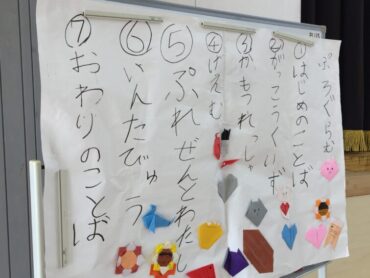 ぷろぐらむ
①はじめのことば
②がっこうくいず
③かもつれっしゃ
④げえむ
⑤ぷれぜんとわたし
⑥いんたびゅう
⑦おわりのことば